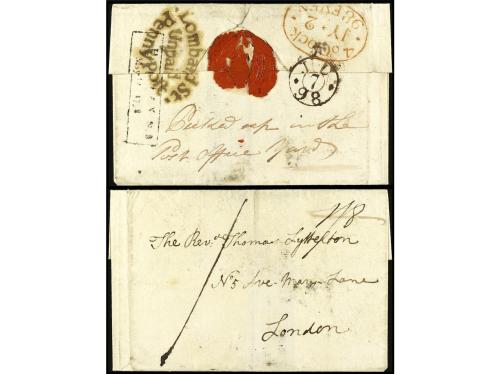 Penny Post
Unpaid
Lombard St.
4 o'Clock
JY. 2
98 EVEN
7
98
Picked up in the
Post Office Yard
1/8
The Revd. Thomas Lyttelton
No 5 Ave-Mary-Lane
London